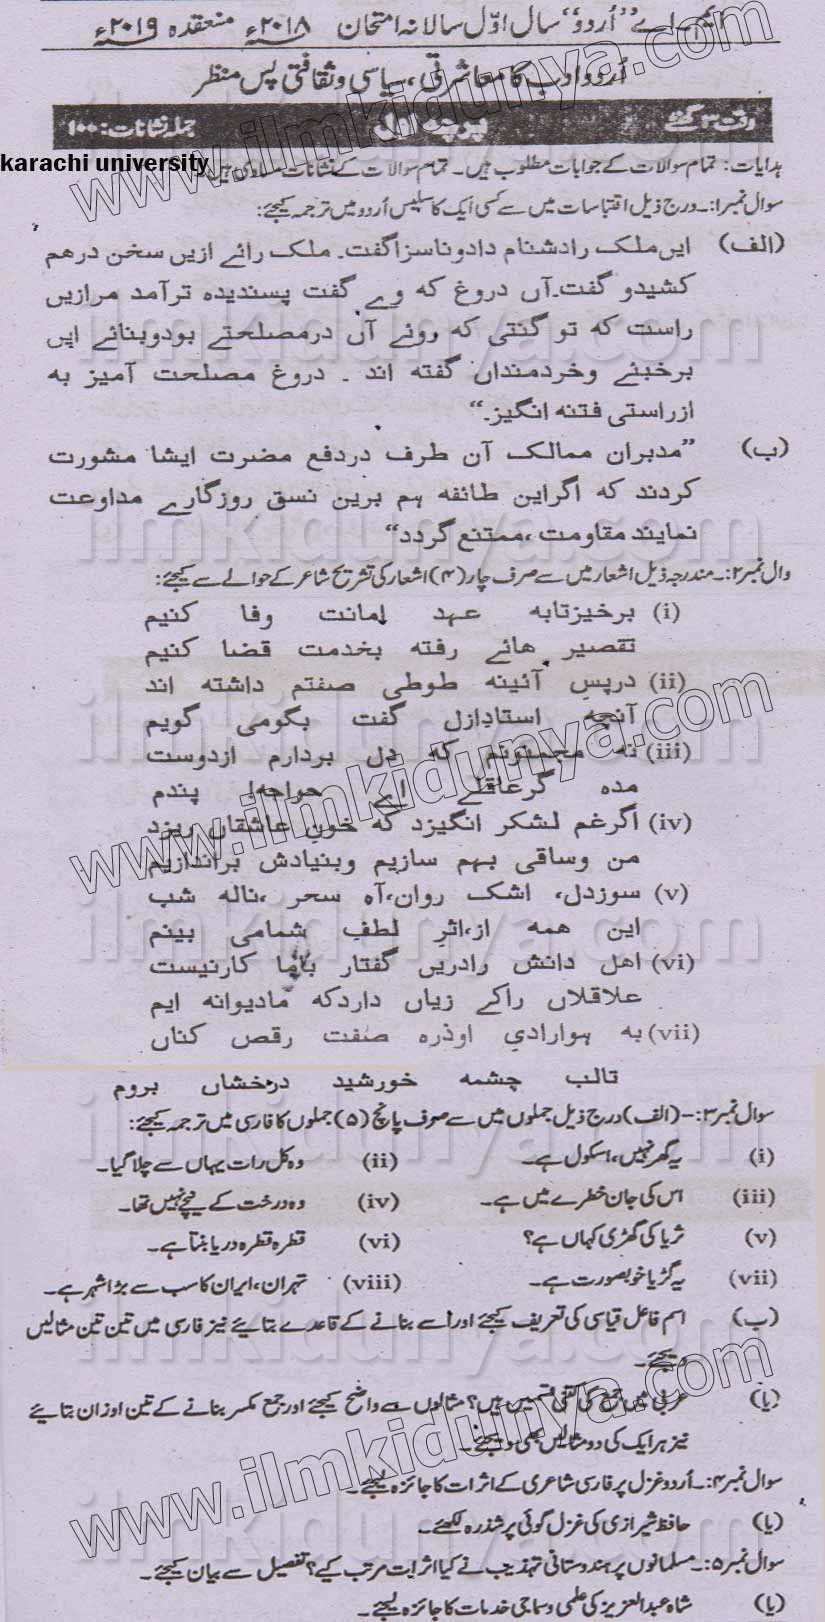 ایم۔اے "اُردو" سال اوّل سالانہ امتحان ۲۰۱۸ء منعقدہ ۲۰۱۹ء
اُردو ادب کا معاشرتی، سیاسی و ثقافتی پس منظر
وقت ۳ گھنٹے پرچہ اول جملہ نشانات: ۱۰۰
karachi university
ہدایات: تمام سوالات کے جوابات مطلوب ہیں۔ تمام سوالات کے نشانات مساوی ہیں۔
سوال نمبر۱:۔ درج ذیل اقتباسات میں سے کسی ایک کا سلیس اُردو میں ترجمہ کیجئے:
(الف) ایں ملک رادشنام دادوناسزاگفت۔ ملک رائے ازیں سخن درھم
کشیدو گفت۔آں دروغ که وے گفت پسندیدہ ترآمد مرازیں
راست که تو گنتی که روئے آں درمصلحتے بودوبنائے ایں
برخبثے وخردمنداں گفته اند ۔ دروغ مصلحت آمیز به
ازراستی فتنه انگیز۔“
(ب) ”مدبران ممالک آن طرف دردفع مضرت ایشا مشورت
کردند که اگراین طائفه ہم برین نسق روزگارے مداوعت
نمایند مقاومت ،ممتنع گردد“
وال نمبر۲:۔ مندرجہ ذیل اشعار میں سے صرف چار (۴) اشعار کی تشریح شاعر کے حوالے سے کیجئے:
(i) برخیزتابه عہد امانت وفا کنیم
تقصیر هائے رفته بخدمت قضا کنیم
(ii) درپسِ آئینه طوطی صفتم داشته اند
آنچه استادِازل گفت بگومی گویم
(iii) نه مجمنونم که دل بردارم ازدوست
مده گرعاقلے اے خواجه! پندم
(iv) اگرغم لشکر انگیزد که خونِ عاشقاں ریزد
من وساقی بہم سازیم وبنیادش براندازیم
(v) سوزدل، اشک رواں،آه سحر ،ناله شب
این ہمه از،اثرِ لطفِ شمامی بینم
(vi) اهل دانش رادریں گفتار باما کارنیست
علاقلاں راکے زیاں داردکه مادیوانه ایم
(vii) به ہوارادیِ اوذره صفت رقص کناں
تالب چشمه خورشید درخشاں بروم
سوال نمبر۳:۔ (الف) درج ذیل جملوں میں سے صرف پانچ (۵) جملوں کا فارسی میں ترجمہ کیجئے:
(i) یہ گھر نہیں، اسکول ہے۔ (ii) وہ کل رات یہاں سے چلا گیا۔
(iii) اس کی جان خطرے میں ہے۔ (iv) وہ درخت کے نیچے نہیں تھا۔
(v) ثریا کی گھڑی کہاں ہے؟ (vi) قطرہ قطرہ دریا بنتا ہے۔
(vii) یہ گڑیا خوبصورت ہے۔ (viii) تہران، ایران کا سب سے بڑا شہر ہے۔
(ب) اسم فاعل قیاسی کی تعریف کیجئے اور اسے بنانے کے قاعدے بتائیے نیز فارسی میں تین تین مثالیں
دیجئے۔
(یا) عربی میں جمع کی کتنی قسمیں ہیں؟ مثالوں سے واضح کیجئے اور جمع مکسر بنانے کے تین اوزان بتائیے
نیز ہر ایک کی دو مثالیں بھی دیجئے۔
سوال نمبر۴:۔ اُردو غزل پر فارسی شاعری کے اثرات کا جائزہ لیجئے۔
(یا) حافظ شیرازی کی غزل گوئی پر شذرہ لکھئے۔
سوال نمبر۵:۔ مسلمانوں پر ہندوستانی تہذیب نے کیا اثرات مرتب کیے؟ تفصیل سے بیان کیجئے۔
(یا) شاہ عبدالعزیز کی علمی و سماجی خدمات کا جائزہ لیجئے۔
www.ilmkidunya.com
www.ilmkidunya.com
www.ilmkidunya.com
ilmkidunya.com
ilmkidunya.com
ilmkidunya.com
ilmkidunya.com
ilmkidunya.com
ilmkidunya.com
ilmkidunya.com